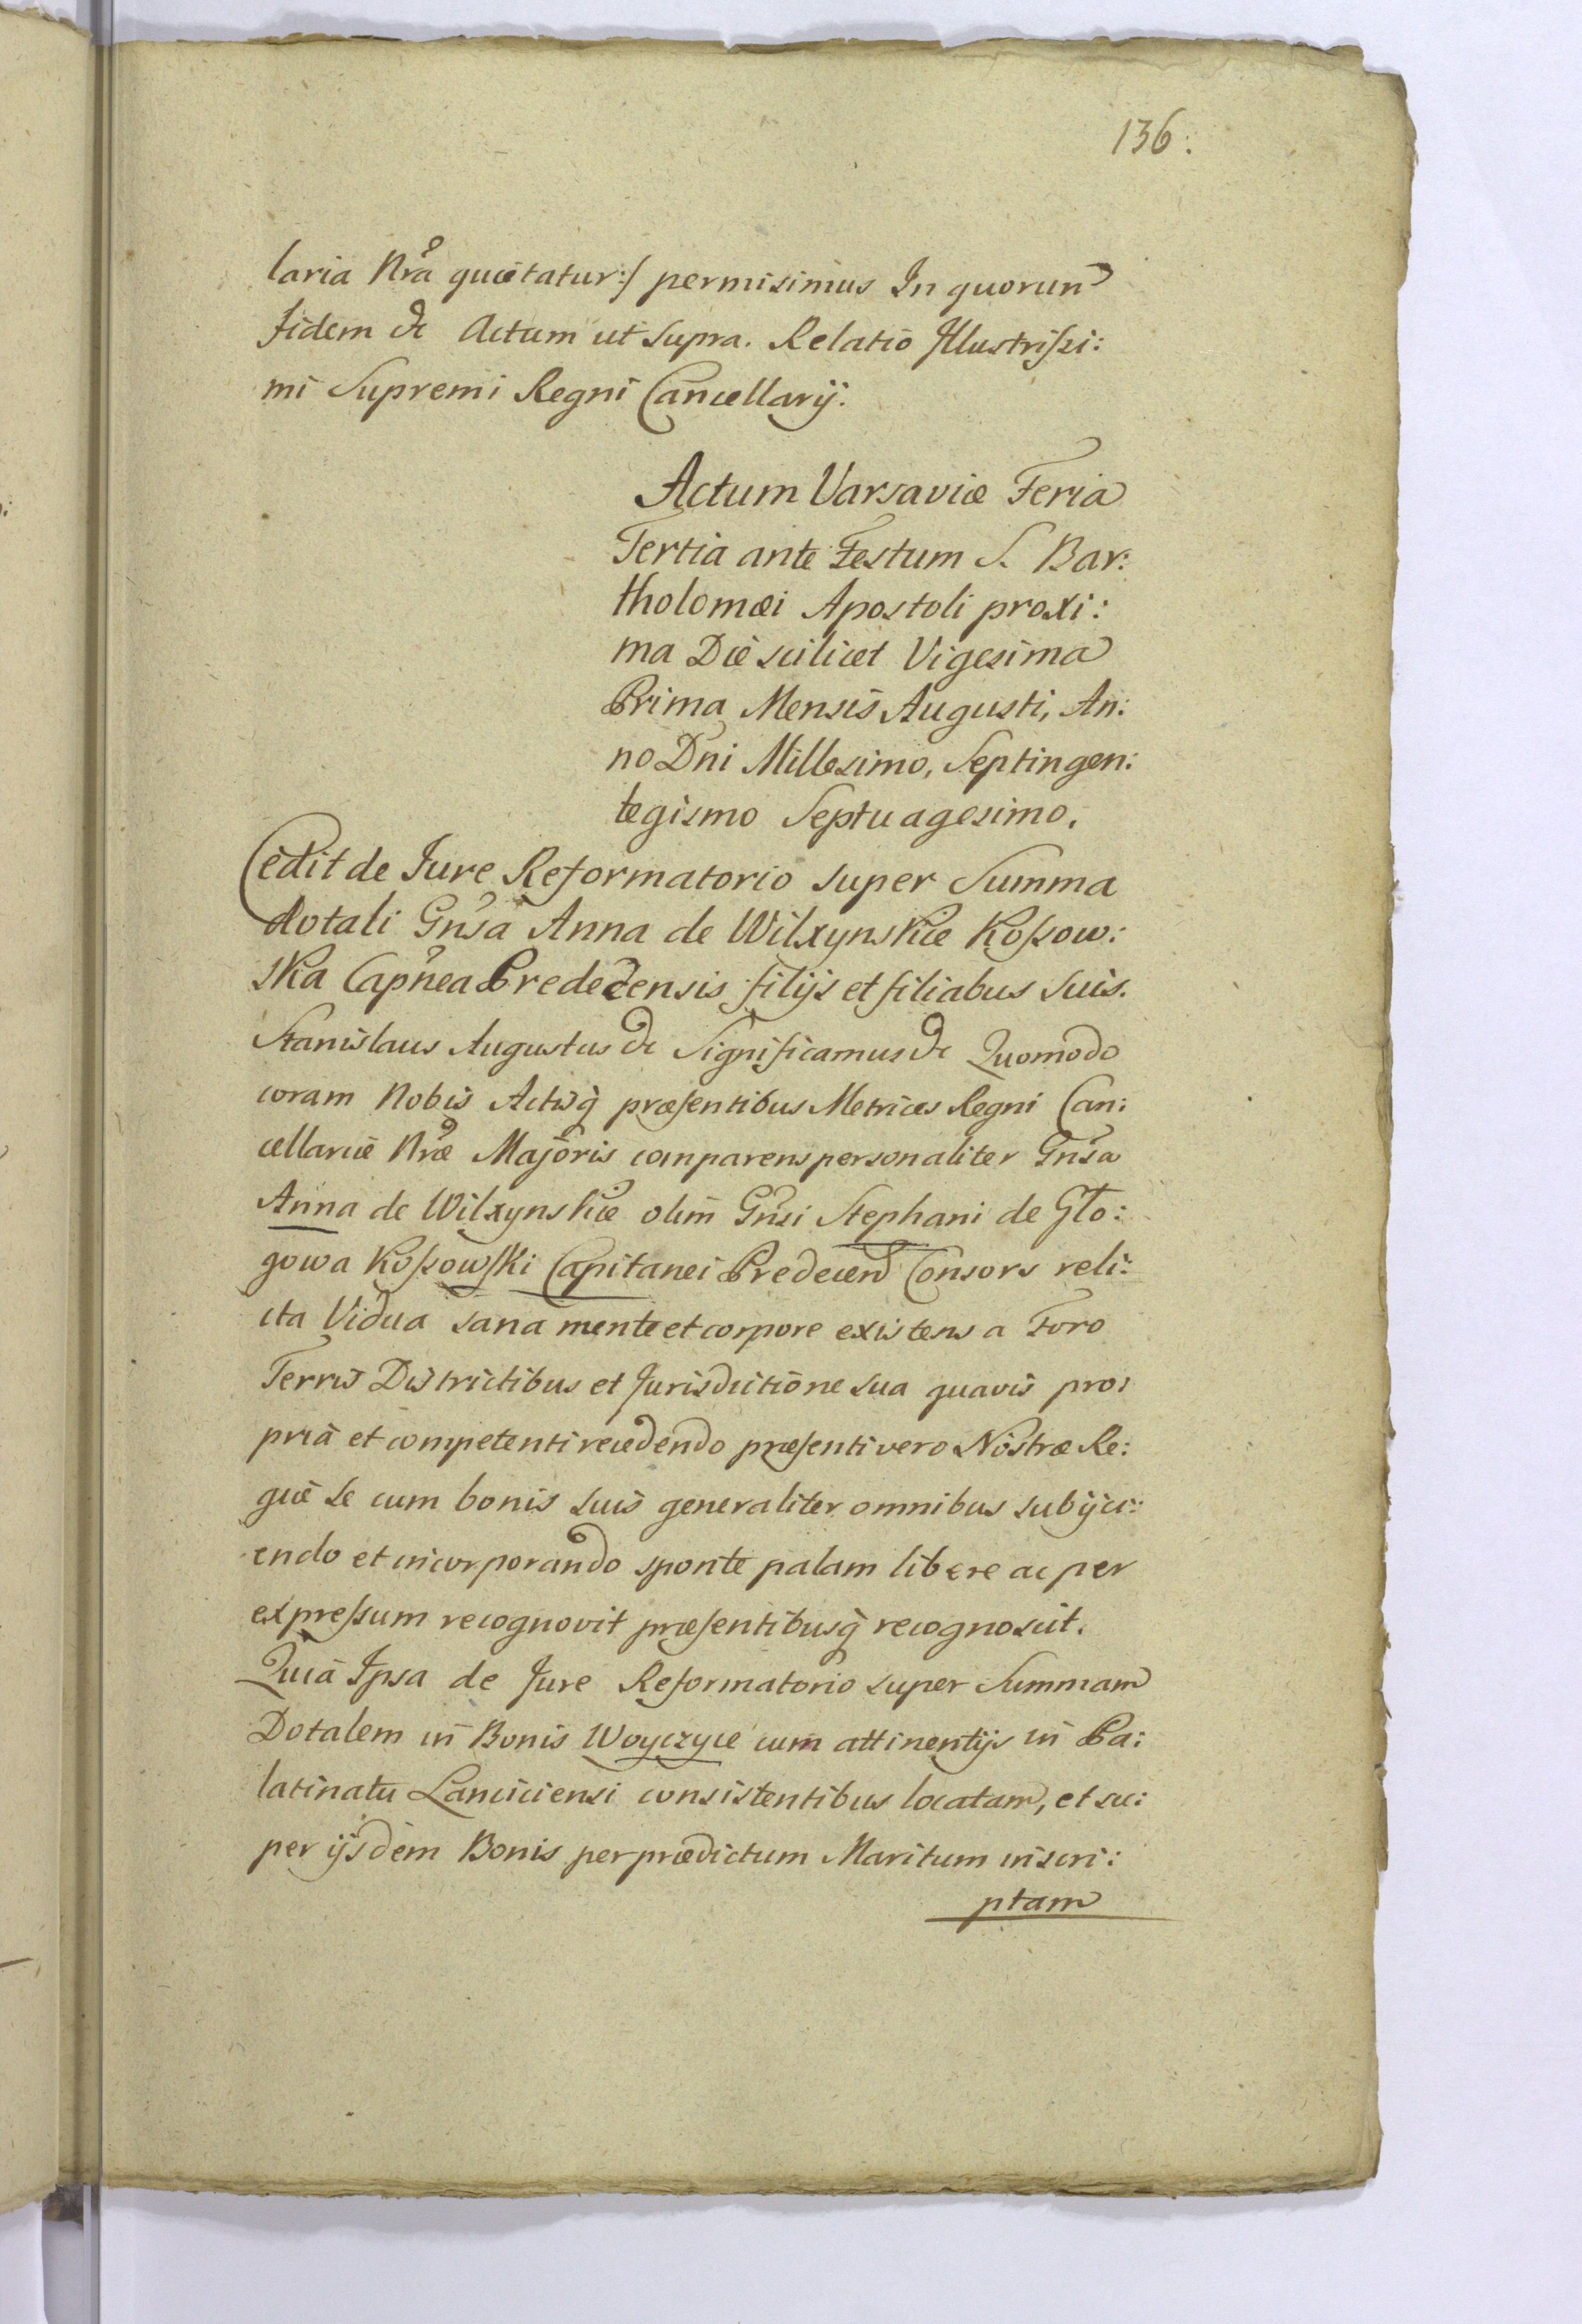 136.
laria Nrã quietatur:/ permisimus In quorum
fidem &c Actum ut supra. Relatio Illustrissi:
mi Supremi Regni Cancellarij.
Actum Varsaviæ Feria
Tertia ante Festum S. Bar:
tholomæi Apostoli proxi:
ma Die scilicet Vigesima
Prima Mensis Augusti, An:
no Dñi Millesimo, Septingen:
tegismo Septuagesimo.
Cedit de Iure Reformatorio super Summa
dotali Gñsa Anna de Wilxynskie Kossow:
ska Capñea Predecensis filijs et filiabus suis.
Stanislaus Augustus &c Significamus &c Quomodo
coram Nobis Actisq̃ præsentibus Metrices Regni Can:
cellariæ Nræ Majoris comparens personaliter Gñsa
Anna de Wilxynskie olim Gñsi Stephani de Gło:
gowa Kossowski Capitanei Predecen Consors reli:
cta Vidua sana mente et corpore existens a Foro
Terris Districtibus et Jurisdictione sua quavis pro:
pria et competenti recedendo præsenti vero Nostræ Re:
giæ se cum bonis suis generaliter omnibus subijci:
endo et incorporando sponte palam libere ac per
expressum recognovit præsentibusq̃ recognoscit.
Quia Ipsa de Jure Reformatorio super Summam
Dotalem in Bonis Woyczyce cum attinentijs in Pa:
latinatu Lanciciensi consistentibus locatam, et su:
per ijsdem Bonis per prædictum Maritum inscri:
ptam